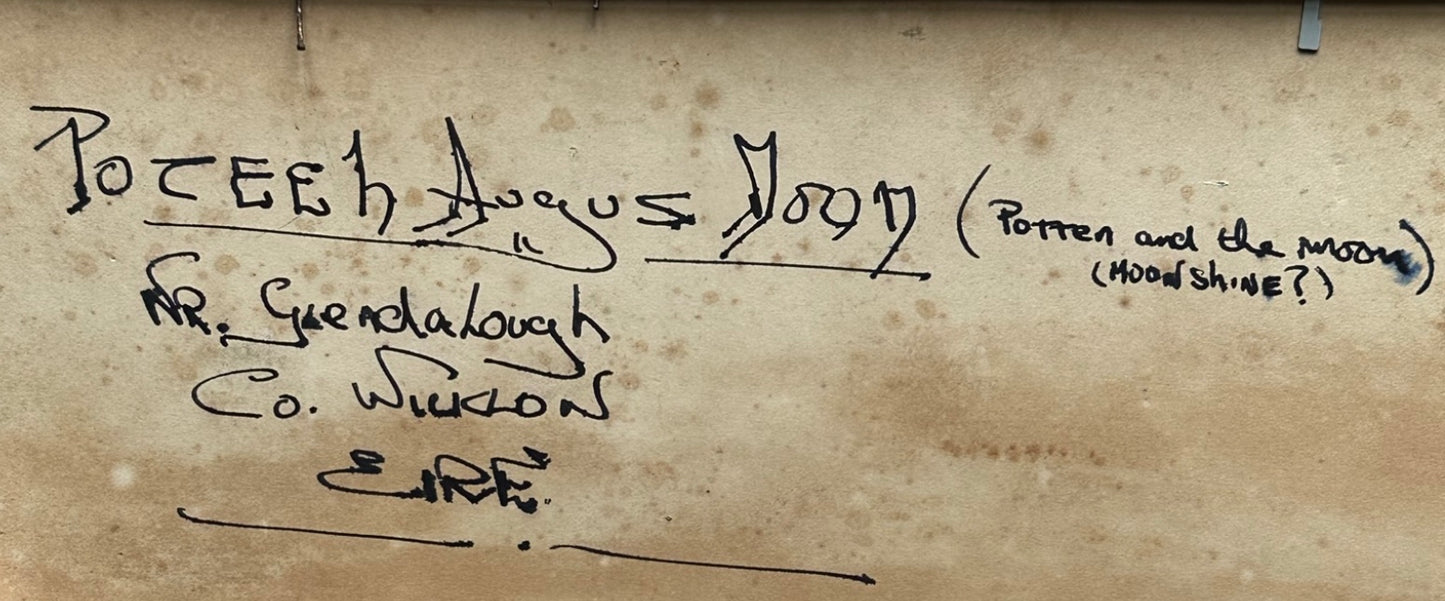 POTEEN AUGUS Moon (Potteen and the moon)
(MOONSHINE?)
NR. Glendalough
Co. WICKLOW
EIRE.